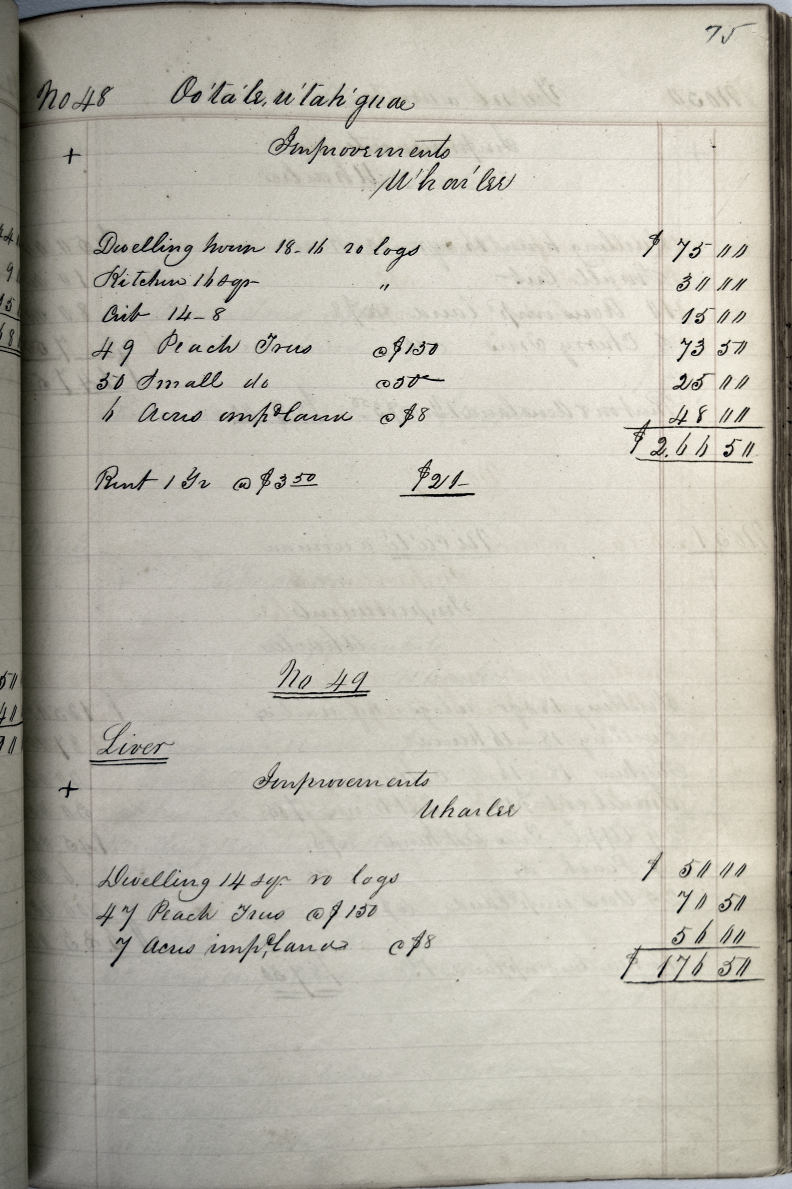 75
No 48 Oo'ta'le,u'tah'guae
+ Improvements
U'har'lee
Dwelling house 18-16 ro logs $ 75 00
Kitchen 16 sqr " 30 00
Crib 14-8 15 00
49 Peach Trees @ $1 50 73 50
50 Small do @ 50 25 00
6 Acres imp.d land @ $8 48 00
$ 266 50
Rent 1 Yr @ $3 50 $21-
No 49
Liver
+ Improvements
Uharlee
Dwelling 14 sqr ro logs $ 50 00
47 Peach Trees @ $1 50 70 50
7 Acres imp.d land @ $8 56 00
$ 176 50